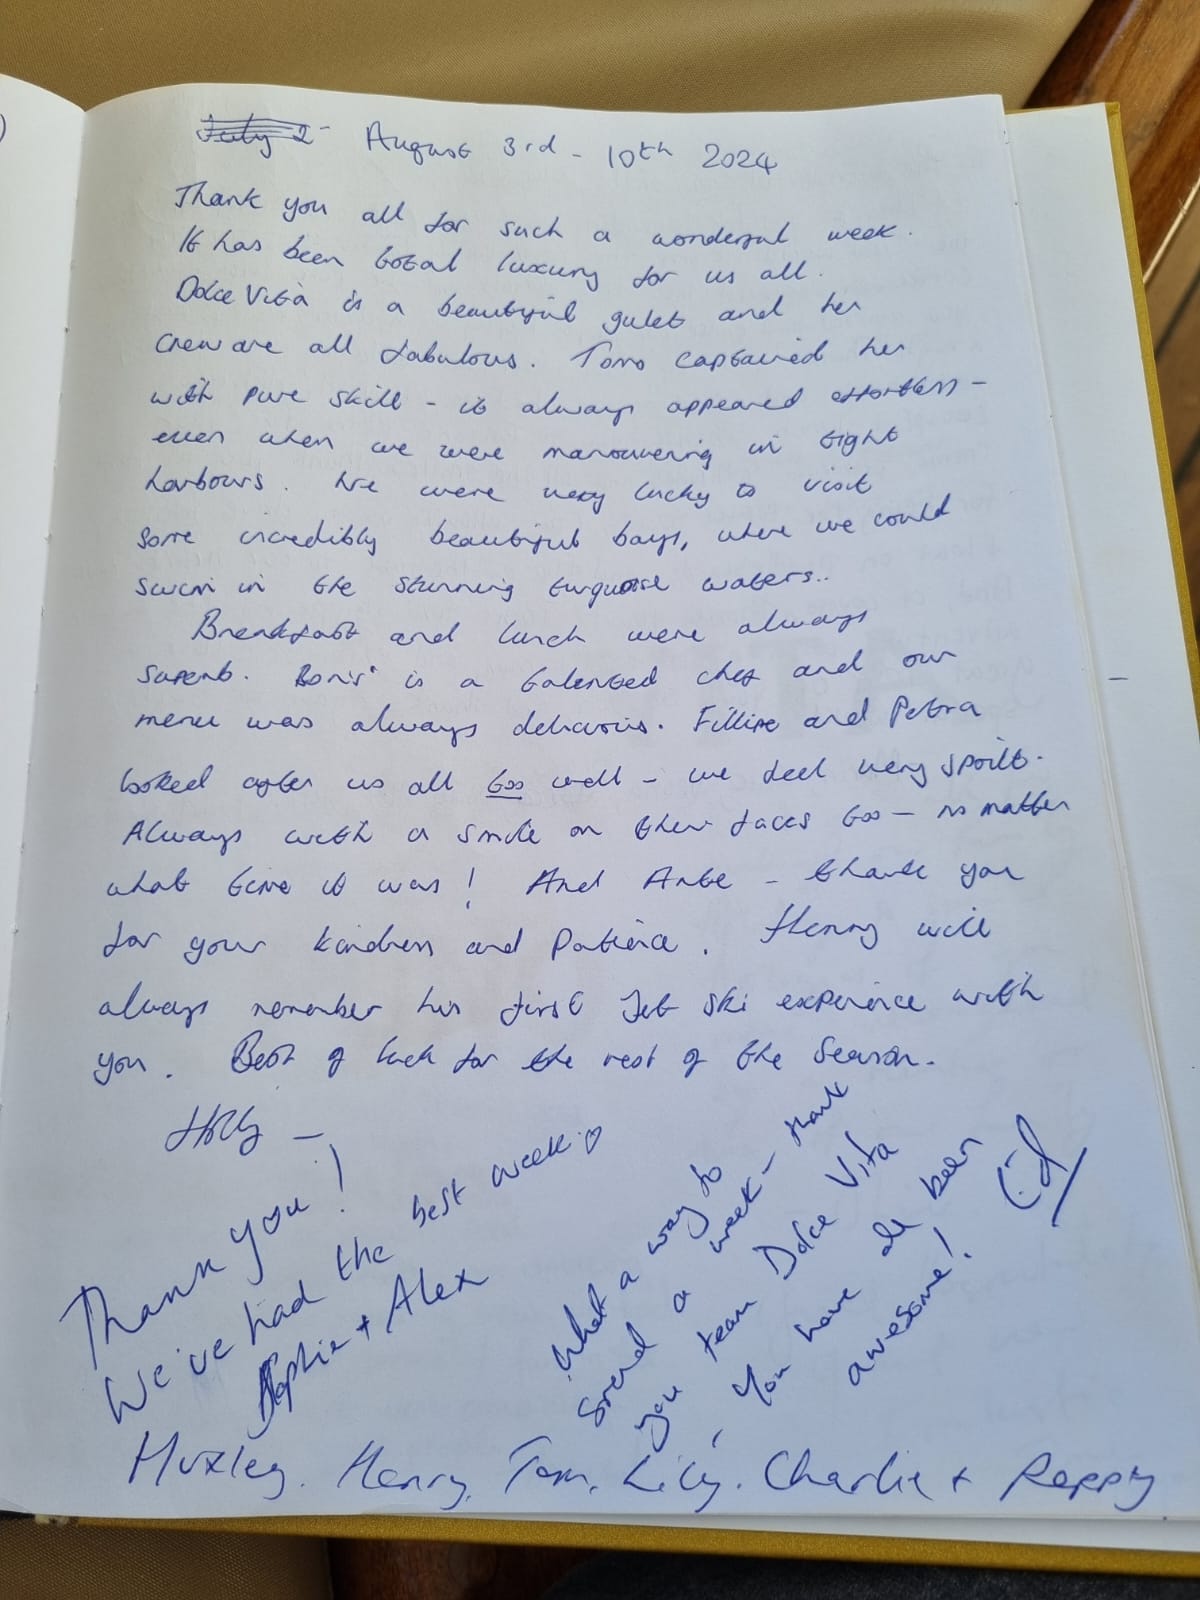 July 2 - August 3rd - 10th 2024
Thank you all for such a wonderful week.
It has been total luxury for us all.
Dolce Vita is a beautiful gulet and her
crew are all fabulous. Tomo captained her
with pure skill - it always appeared effortless -
even when we were manouvering in tight
harbours. We were very lucky to visit
some incredibly beautiful bays, where we could
swim in the stunning turquoise waters..
Breakfast and lunch were always
superb. Boris is a talented chef and our
menu was always delicious. Fillipe and Petra
looked after us all too well - we feel very spoilt.
Always with a smile on their faces too - no matter
what time it was! And Ante - thank you
for your kindness and patience. Henry will
always remember his first Jet Ski experience with
you. Best of luck for the rest of the season.
Holly -
Thank you!
We've had the best week
Sophie + Alex
What a way to
spend a week - thank
you team Dolce Vita
You have all been
awesome!
Ed
Huxley, Henry, Tom, Lily, Charlie + Poppy